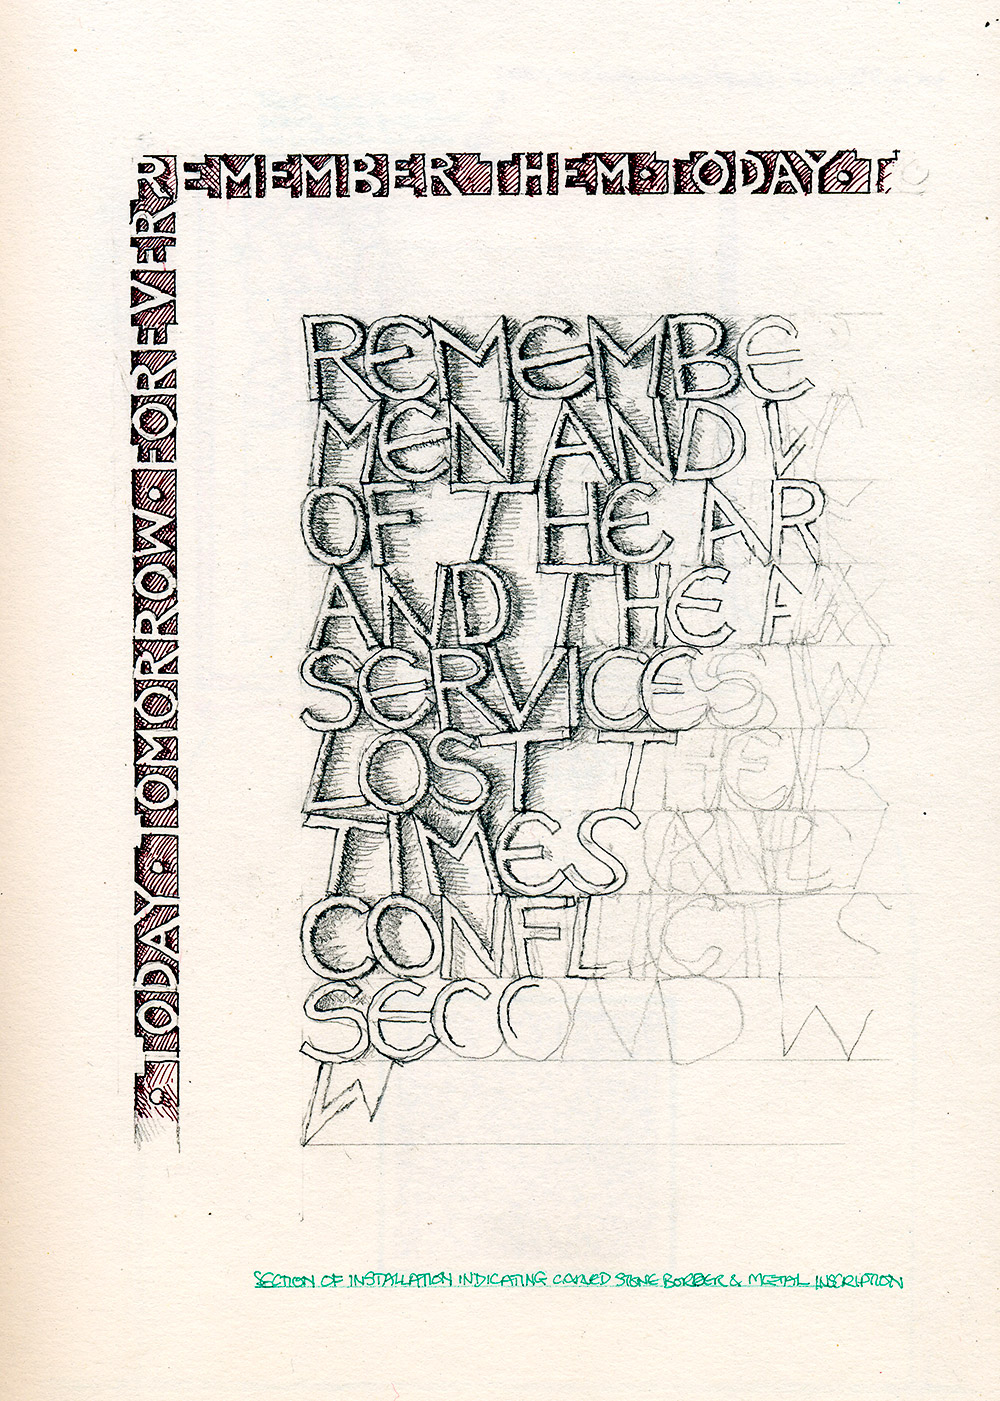 REMEMBER THEM · TODAY · TO
· TODAY · TOMORROW · FOREVER
REMEMBE
MEN AND W
OF THE AR
AND THE
SERVICES W
LOST THEIR
TIMES AND
CONFLICT
SECOND W
W
SECTION OF INSTALLATION INDICATING CARVED STONE BORDER & METAL INSCRIPTION